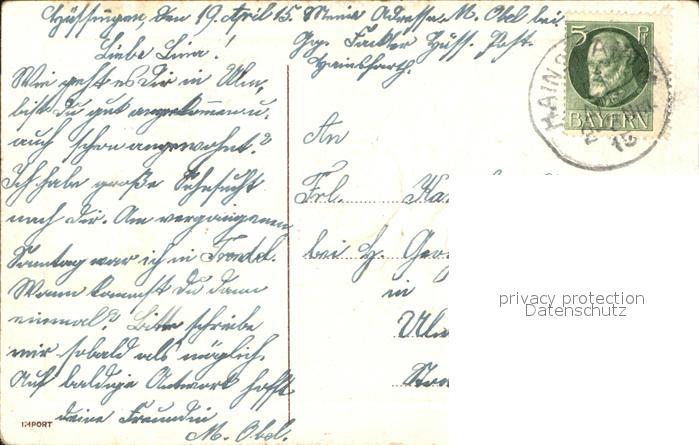 Hüssingen, den 19. April 15. Meine Adresse M. Obel bei
Gg. Fackler Hüss. Post.
Hainsfarth.
Liebe Lina!
Wie geht es Dir in Ulm,
bist Du gut angekommen u.
auch schon angewohnt?
Ich habe große Sehnsucht
nach Dir. Am vergangenen
Sonntag war ich in
Wann kommst Du dann
einmal? Bitte schreibe
mir sobald als möglich.
Auf baldige Antwort hofft
deine Freundin
M. Obel.
IMPORT
An
Frl.
bei H. Geo
in
Ulm
5 Pf
BAYERN
HAINSFARTH
15
privacy protection
Datenschutz